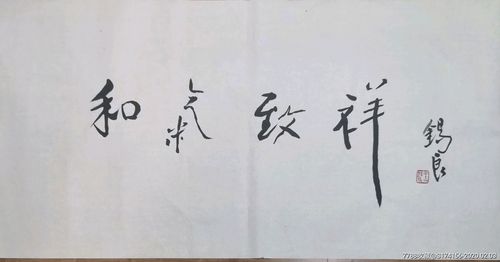 和氣致祥
錫良